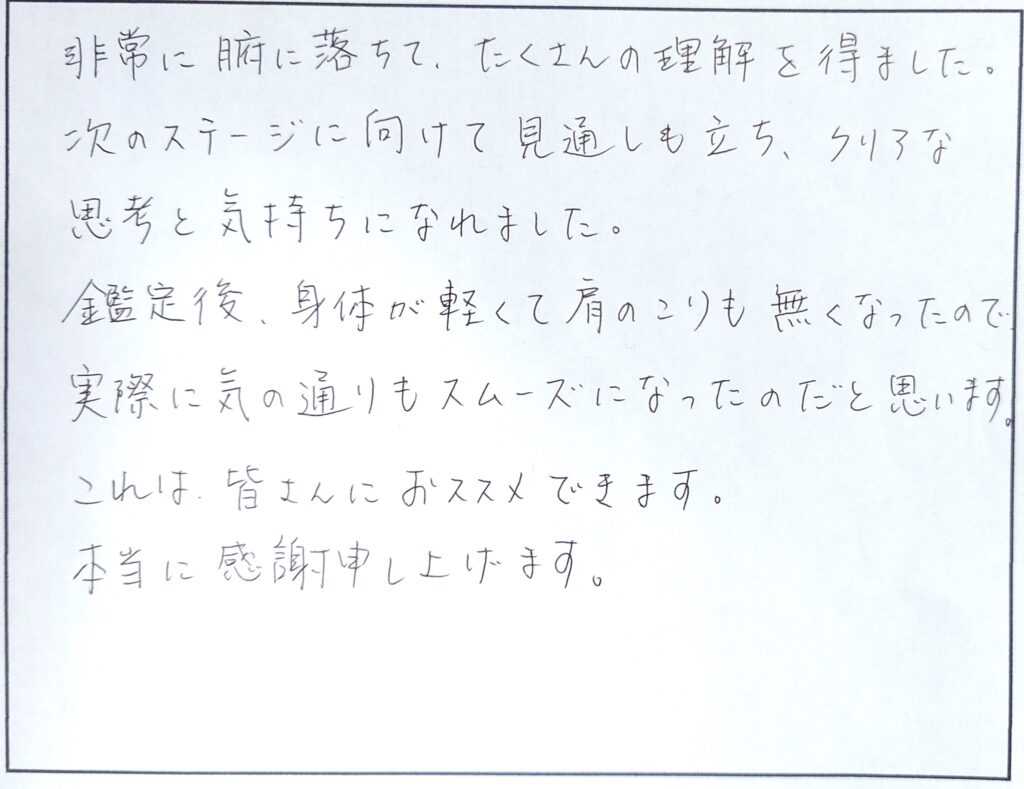 非常に腑に落ちて、たくさんの理解を得ました。
次のステージに向けて見通しも立ち、クリアな
思考と気持ちになれました。
鑑定後、身体が軽くて肩のこりも無くなったので
実際に気の通りもスムーズになったのだと思います。
これは、皆さんにおススメできます。
本当に感謝申し上げます。